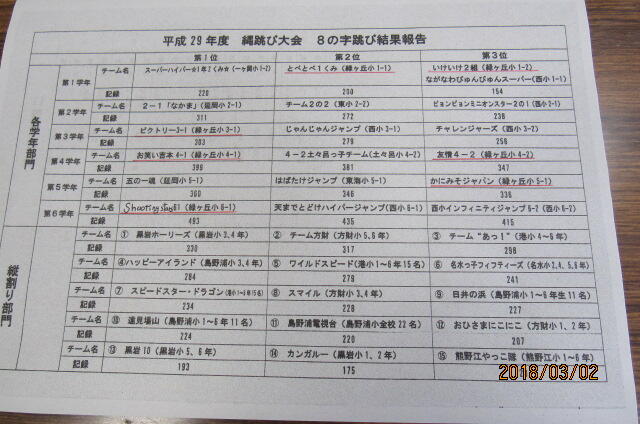 平成29年度 縄跳び大会 8の字跳び結果報告
第1位 第2位 第3位
各学年部門
第1学年 チーム名 スーパーハイパー☆1年2くみ☆(一ケ岡小1-2) とべとべ1くみ(緑ヶ丘小1-1) いけいけ2組(緑ヶ丘小1-2)
ながなわびゅんびゅんスーパー(西小1-1)
記録 220 200 154
第2学年 チーム名 2-1「なかま」(延岡小2-1) チーム2の2(東小2-2) ピョンピョンミニオンスター201(西小2-1)
記録 311 272 238
第3学年 チーム名 ビクトリー3-1(緑ヶ丘小3-1) じゃんじゃんジャンプ(西小3-1) チャレンジャーズ(西小3-2)
記録 303 279 256
第4学年 チーム名 お笑い吉本4-1(緑ヶ丘小4-1) 4-2土々呂っ子チーム(土々呂小4-2) 友情4-2(緑ヶ丘小4-2)
記録 399 381 347
第5学年 チーム名 五の一魂(延岡小5-1) はばたけジャンプ(東海小5-1) かにみそジャパン(緑ヶ丘小5-1)
記録 360 346 336
第6学年 チーム名 Shooting stag61(緑ヶ丘小6-1) 天までとどけハイパージャンプ(西小6-1) 西小インフィニティジャンプ6-2(西小6-2)
記録 493 435 415
縦割り部門
チーム名 ①黒岩ホーリーズ(黒岩小3,4年) ②チーム方財(方財小5,6年) ③チーム“あっ!”(港小4~6年)
記録 230 317 298
チーム名 ④ハッピーアイランド(島野浦小3,4年) ⑤ワイルドスピード(港小1~6年15名) ⑥名水っ子フィフティーズ(名水小2,4,5,6年)
記録 284 279 241
チーム名 ⑦スピードスター・ドラゴン(港小1~6年15名) ⑧スマイル(方財小3,4年) ⑨日井の浜(島野浦小1~6年生11名)
記録 234 228 227
チーム名 ⑩遠見場山(島野浦小1~6年11名) ⑪島野浦電視台(島野浦小全校22名) ⑫おひさまにこにこ(方財小1、2年)
記録 224 220 207
チーム名 ⑬黒岩10(黒岩小5、6年) ⑭カンガルー(黒岩小1、2年) ⑮熊野江やっこ隊(熊野江小1~6年)
記録 193 175
2018/03/02